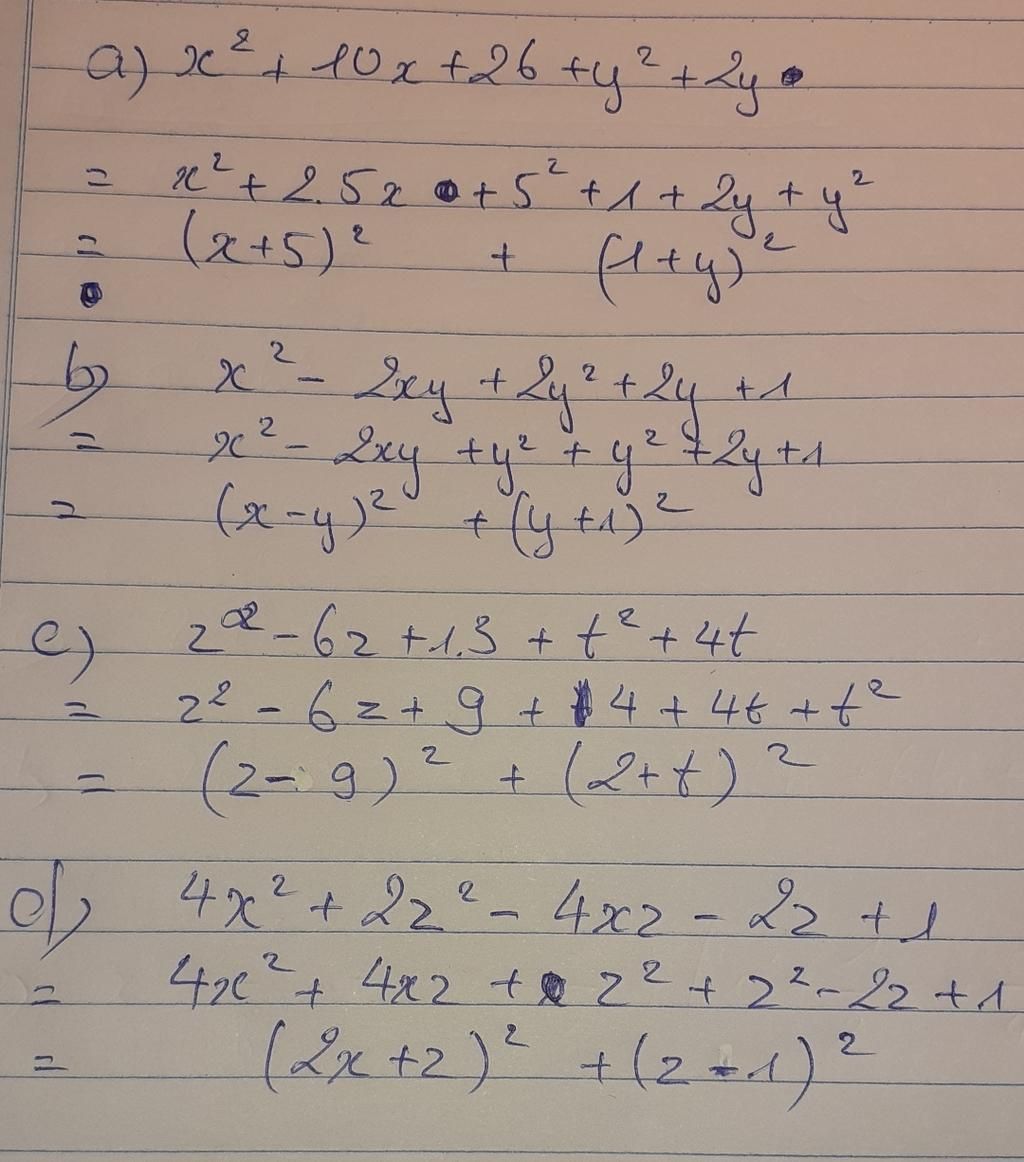 a) x² + 10x + 26 + y² + 2y
= x² + 2.5x + 5² + 1 + 2y + y²
= (x+5)² + (1+y)²
b) x² - 2xy + 2y² + 2y + 1
= x² - 2xy + y² + y² + 2y + 1
= (x-y)² + (y+1)²
c) z² - 6z + 13 + t² + 4t
= z² - 6z + 9 + 4 + 4t + t²
= (z - 9)² + (2+t)²
d) 4x² + 2z² - 4xz - 2z + 1
= 4x² + 4xz + z² + z² - 2z + 1
= (2x+z)² + (z-1)²